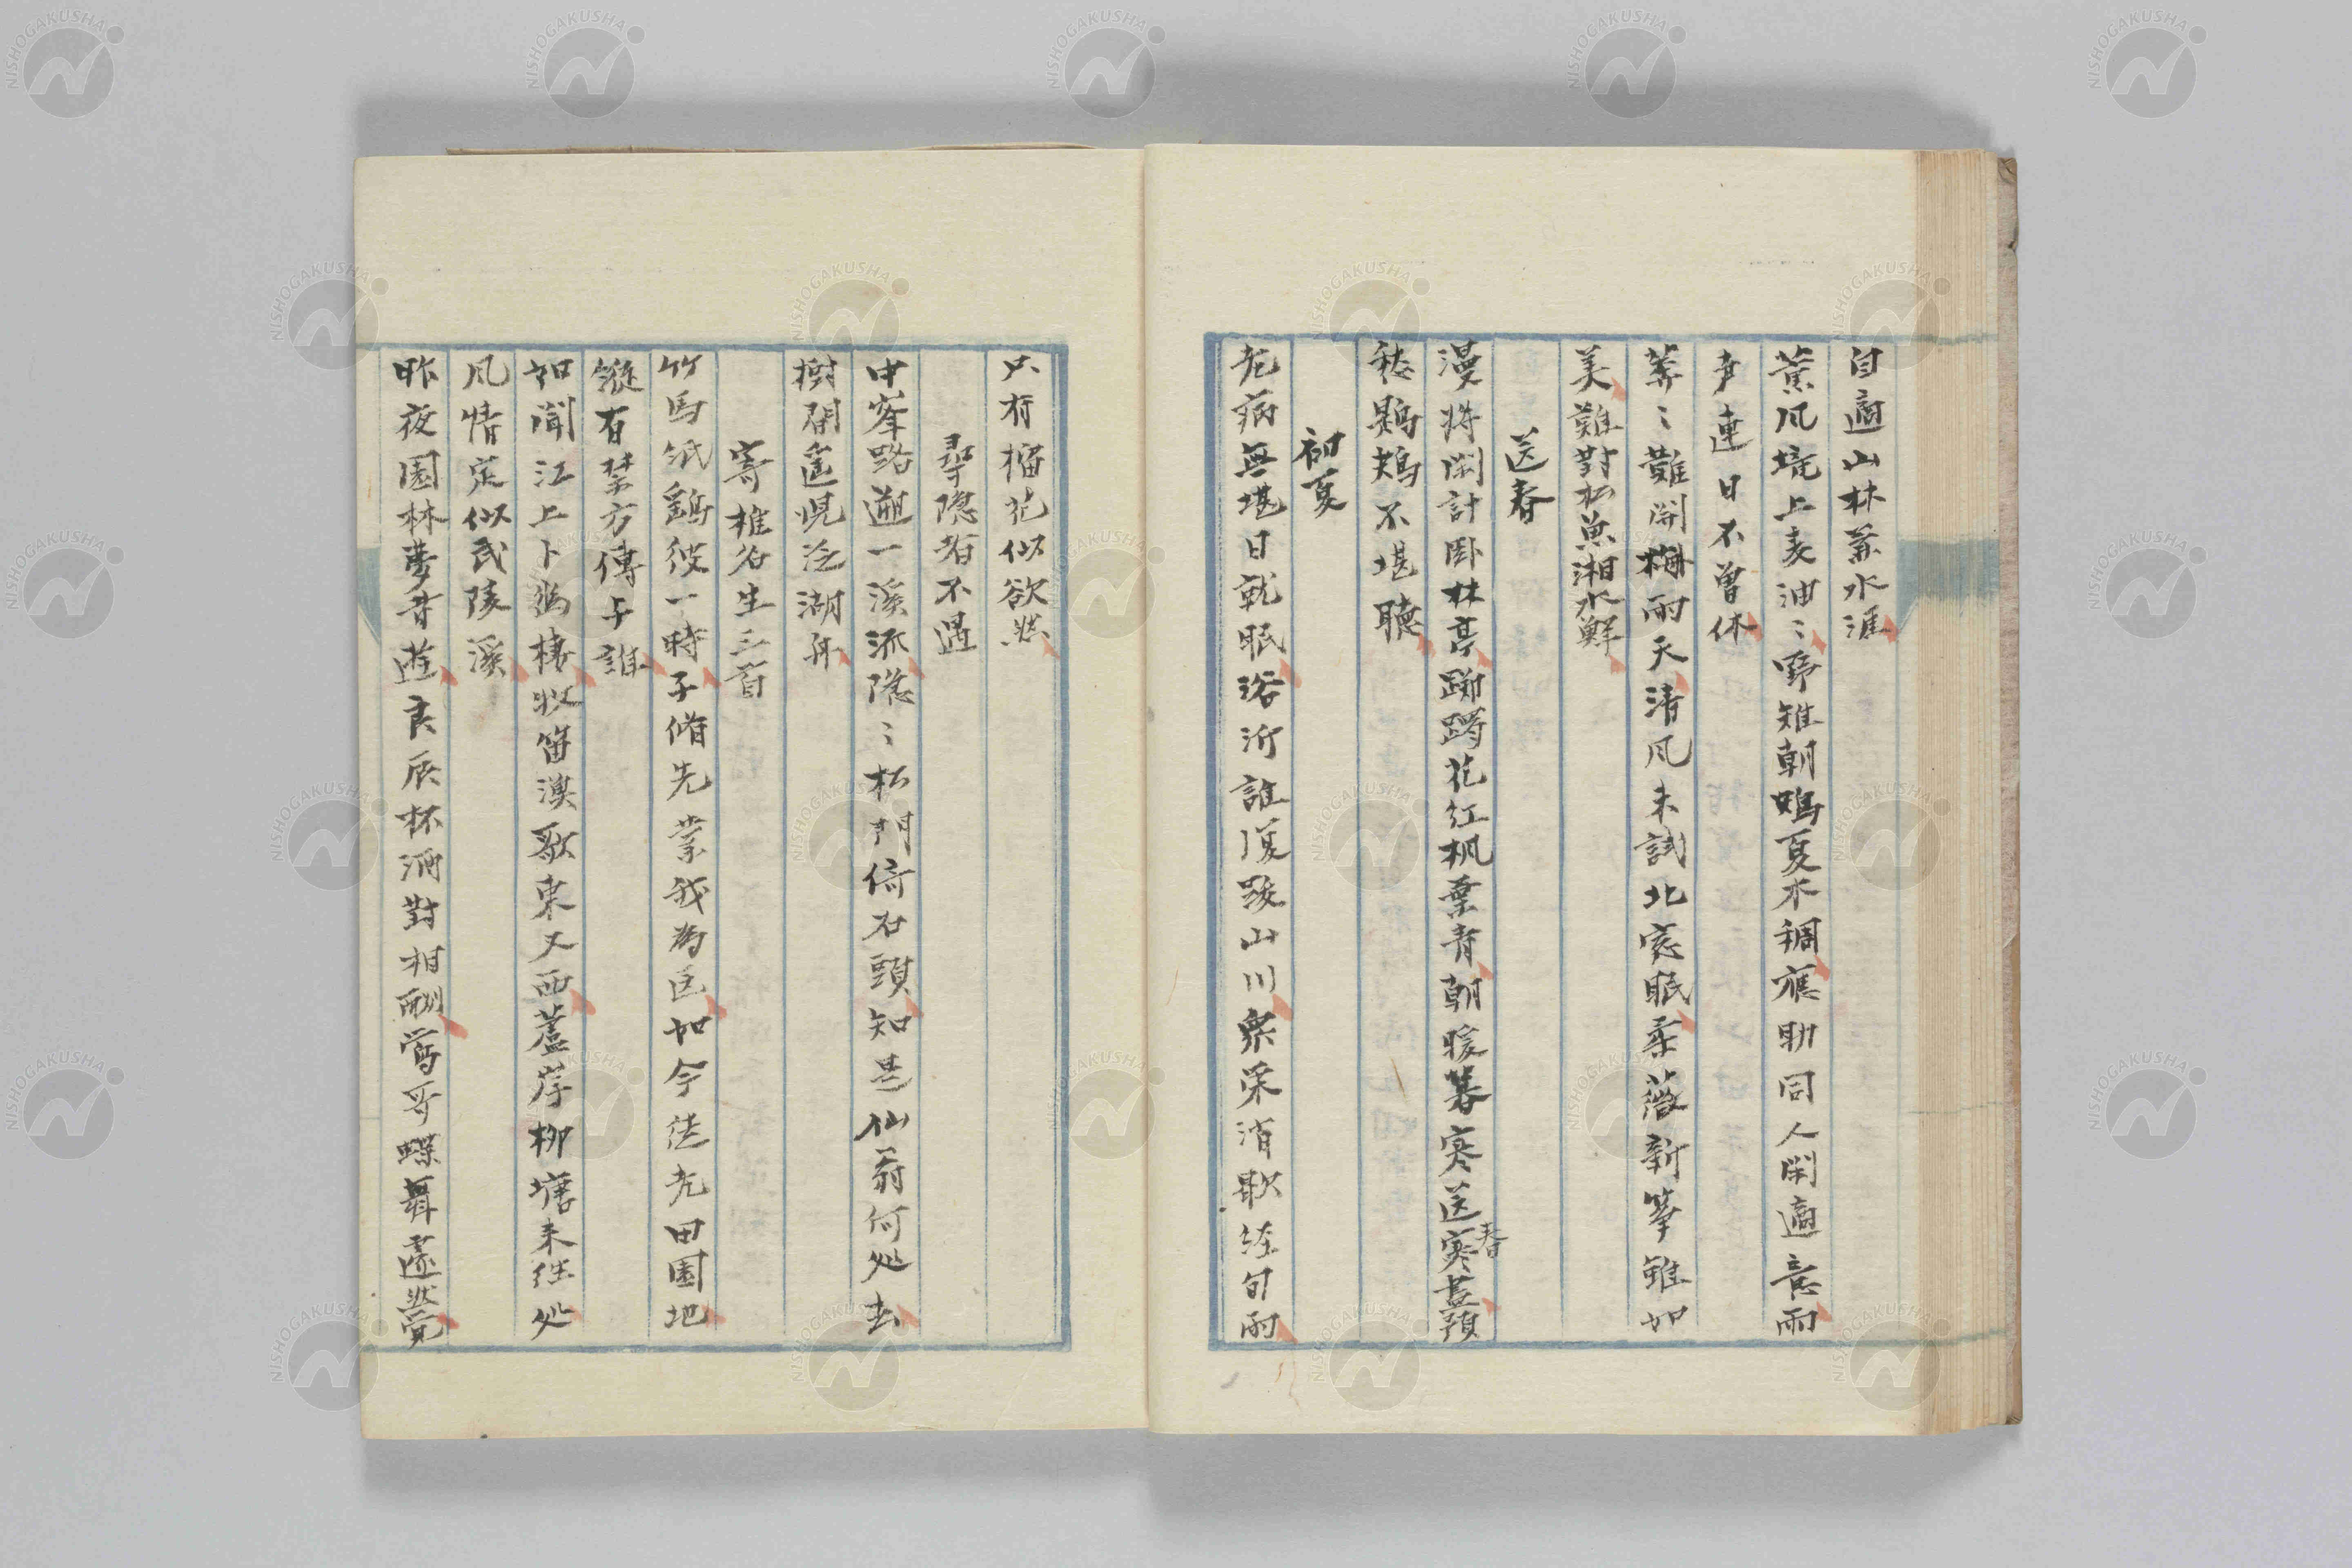 自適山林兼水涯
薫風境上麦油〻野雉朝鳴夏木稠応助同人閑適意雨
声連日不曽休
莽〻難開梅雨天清風未試北窓眠柔薇新筝雖如
美難対松魚湘水鮮
送春
漫将閑計臥林亭躑躅花紅楓葉青朝暖暮寒送寒昼預
春
愁鶗鴂不堪聴
初夏
老病無堪日就眠浴沂誰復跋山川衆采消歇経旬雨
只有榴花似欲燃
尋隠者不遇
中峯路遡一渓流隠〻松門倚石頭知是仙翁何処去
樹間遥児泛湖舟
寄椎名生三首
竹馬紙鷂彼一時子脩先業我為医如今徒老田園地
縦有禁方伝与誰
如聞江上卜鴻棲牧笛漁歌東又西蘆岸柳塘来往処
風情定似武陵渓
昨夜園林夢昔遊良辰杯酒対相酬鶯哥蝶舞遽然覚